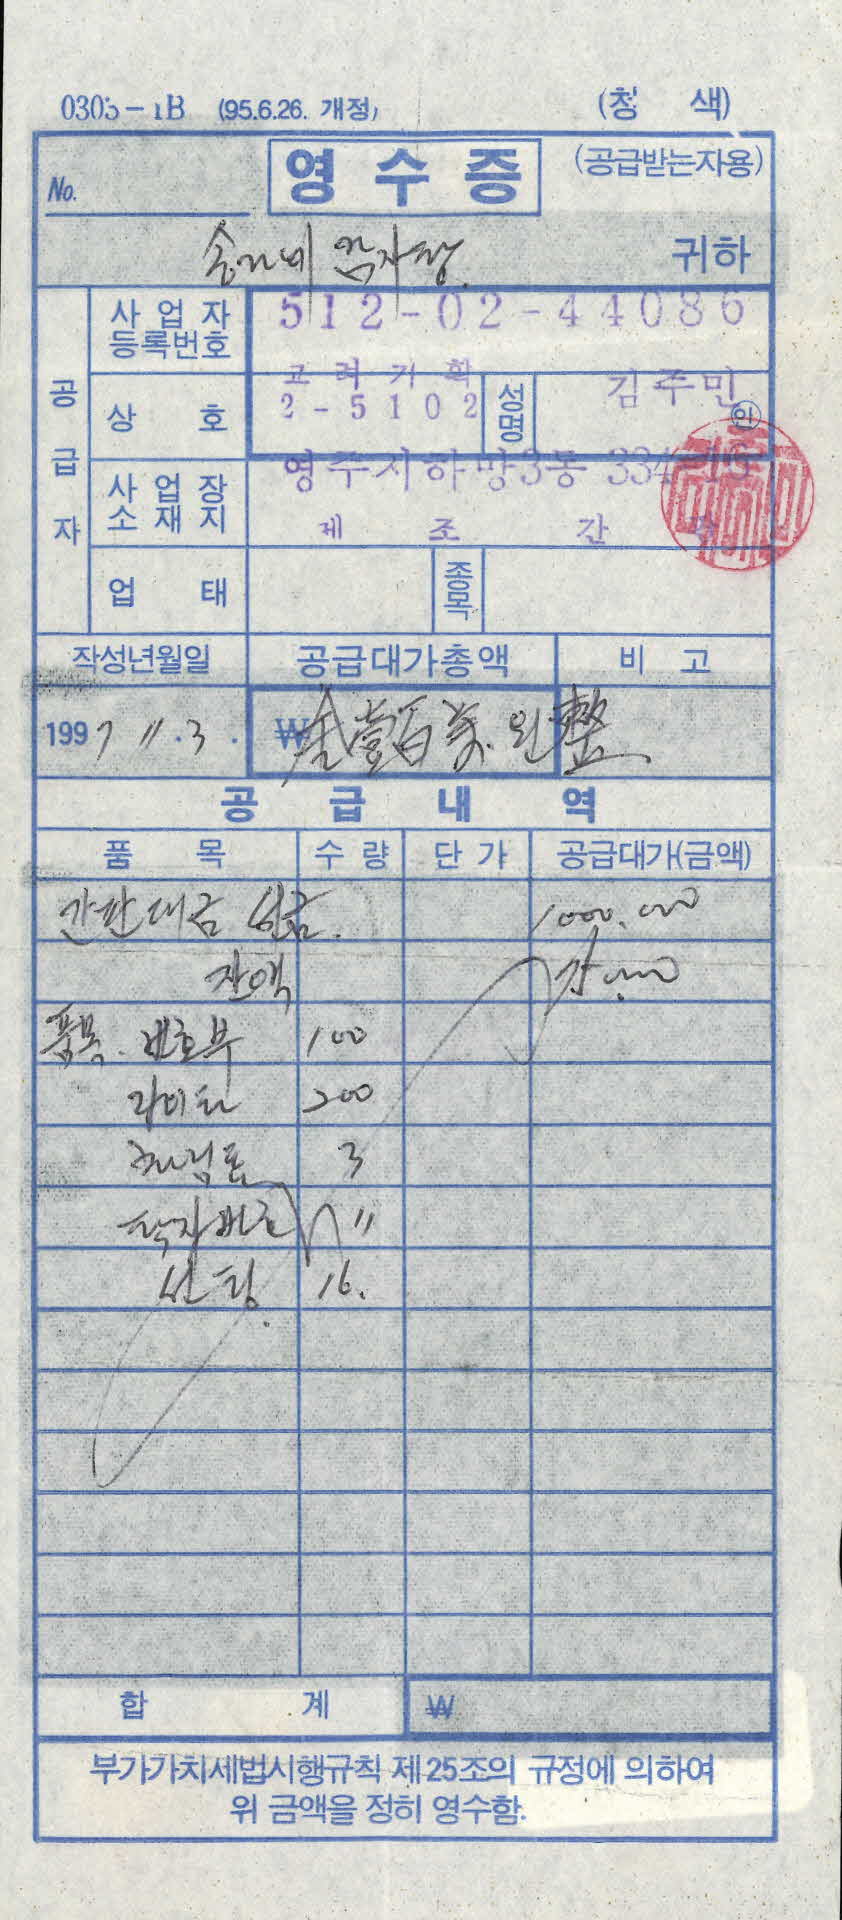 0305-1B (95.6.26. 개정) (청 색)
No. 영수증 (공급받는자용)
감자탕 귀하
공급자
사업자등록번호 512-02-44086
상호 고려기획 2-5102 성명 김주민 인
사업장소재지 영주시하망3동 334-16
제조 간판
업태 종목
작성년월일 공급대가총액 비고
1997 11.3. ₩ 金壹百萬원整
공급내역
품목 수량 단가 공급대가(금액)
간판대금 선금. 1000.000
잔액
품목. 번호부 100
라이타 200
3
탁자번호 〃
선팅 16.
합계 ₩
부가가치세법시행규칙 제25조의 규정에 의하여
위 금액을 정히 영수함.